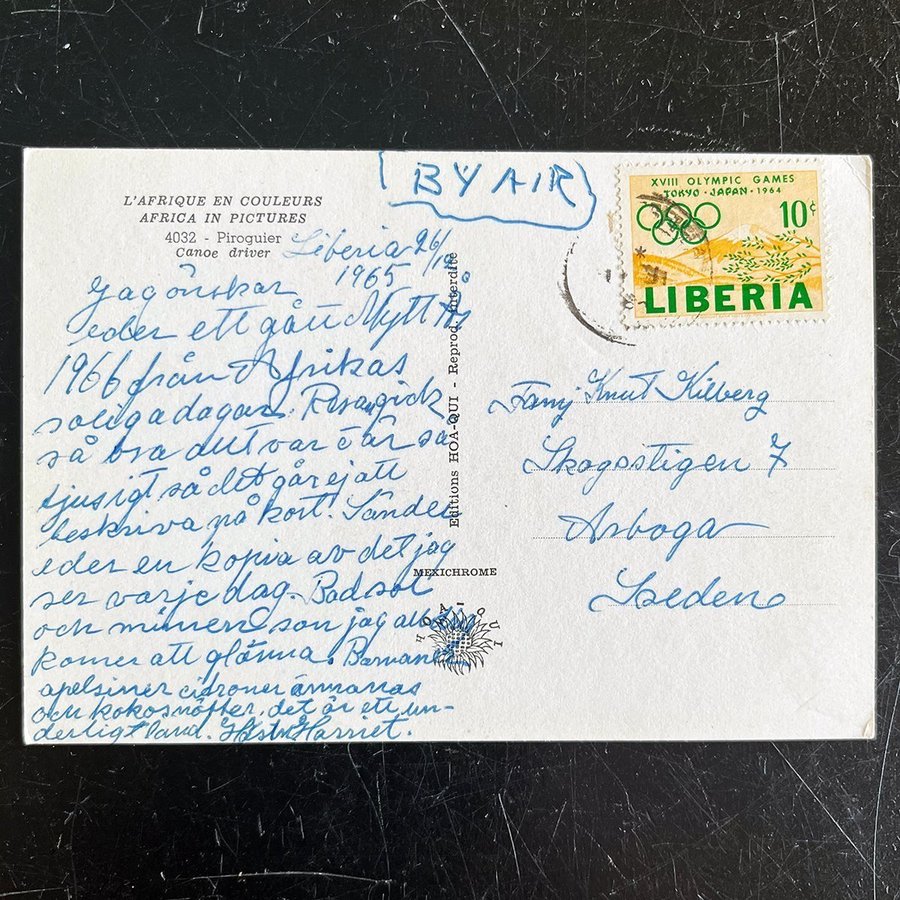 L'AFRIQUE EN COULEURS
AFRICA IN PICTURES
4032 - Piroguier
Canoe driver
Liberia 26/12
1965
Jag önskar
eder ett gått Nytt År
1966 från Afrikas
soliga dagar. Resan gick
så bra det var är så
tjusigt så det går ej att
beskriva på kort. Sänder
eder en kopia av det jag
ser varje dag. Bad sol
och minen som jag aldrig
komer att glömma. Bananer
apelsiner citroner annanas
och kokosnötter, det är ett un-
derligt land. Harriet.
Editions HOA-QUI - Reprod. Interdite
MEXICHROME
HOA QUI
BY AIR
XVIII OLYMPIC GAMES
TOKYO · JAPAN · 1964
10¢
LIBERIA
Famj Knut Kilberg
Skogsstigen 7
Arboga
Sweden